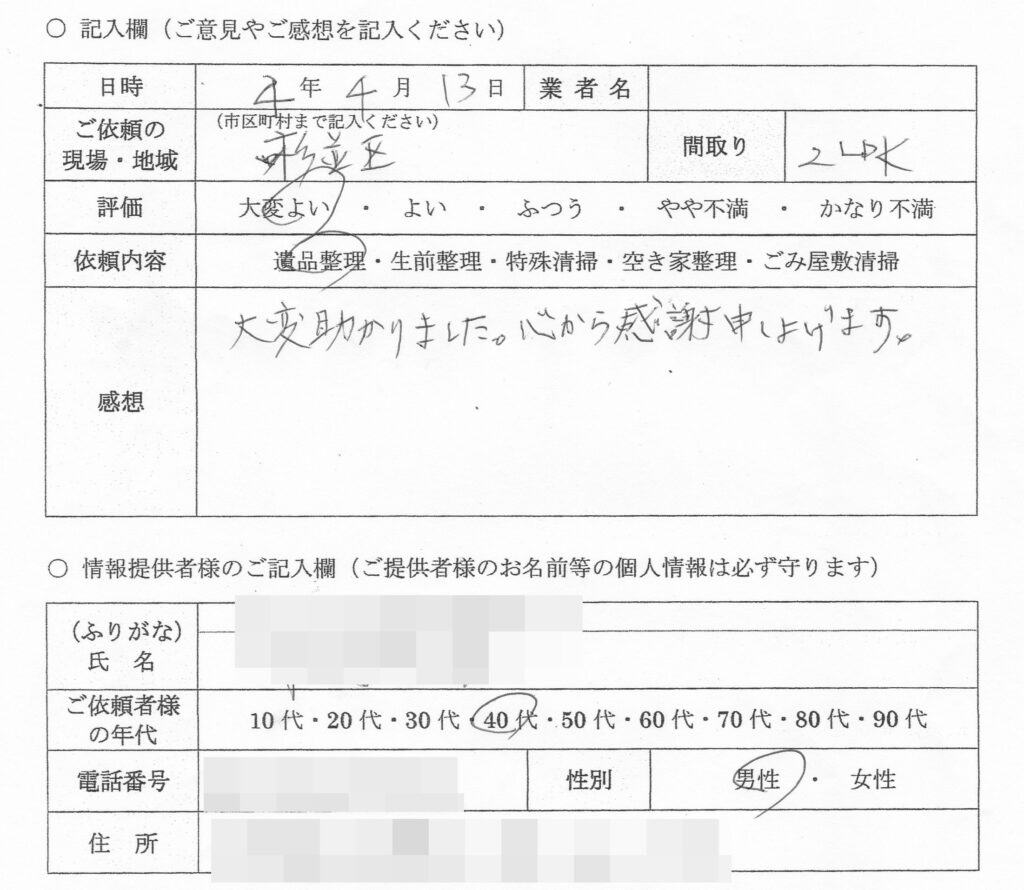 ○ 記入欄（ご意見やご感想を記入ください）
日時 4年 4月 13日 業者名
ご依頼の現場・地域 （市区町村まで記入ください） 杉並区 間取り 2LDK
評価 大変よい ・ よい ・ ふつう ・ やや不満 ・ かなり不満
依頼内容 遺品整理・生前整理・特殊清掃・空き家整理・ごみ屋敷清掃
感想 大変助かりました。心から感謝申し上げます。
○ 情報提供者様のご記入欄（ご提供者様のお名前等の個人情報は必ず守ります）
（ふりがな）
氏 名
ご依頼者様の年代 10代・20代・30代・40代・50代・60代・70代・80代・90代
電話番号 性別 男性 ・ 女性
住 所